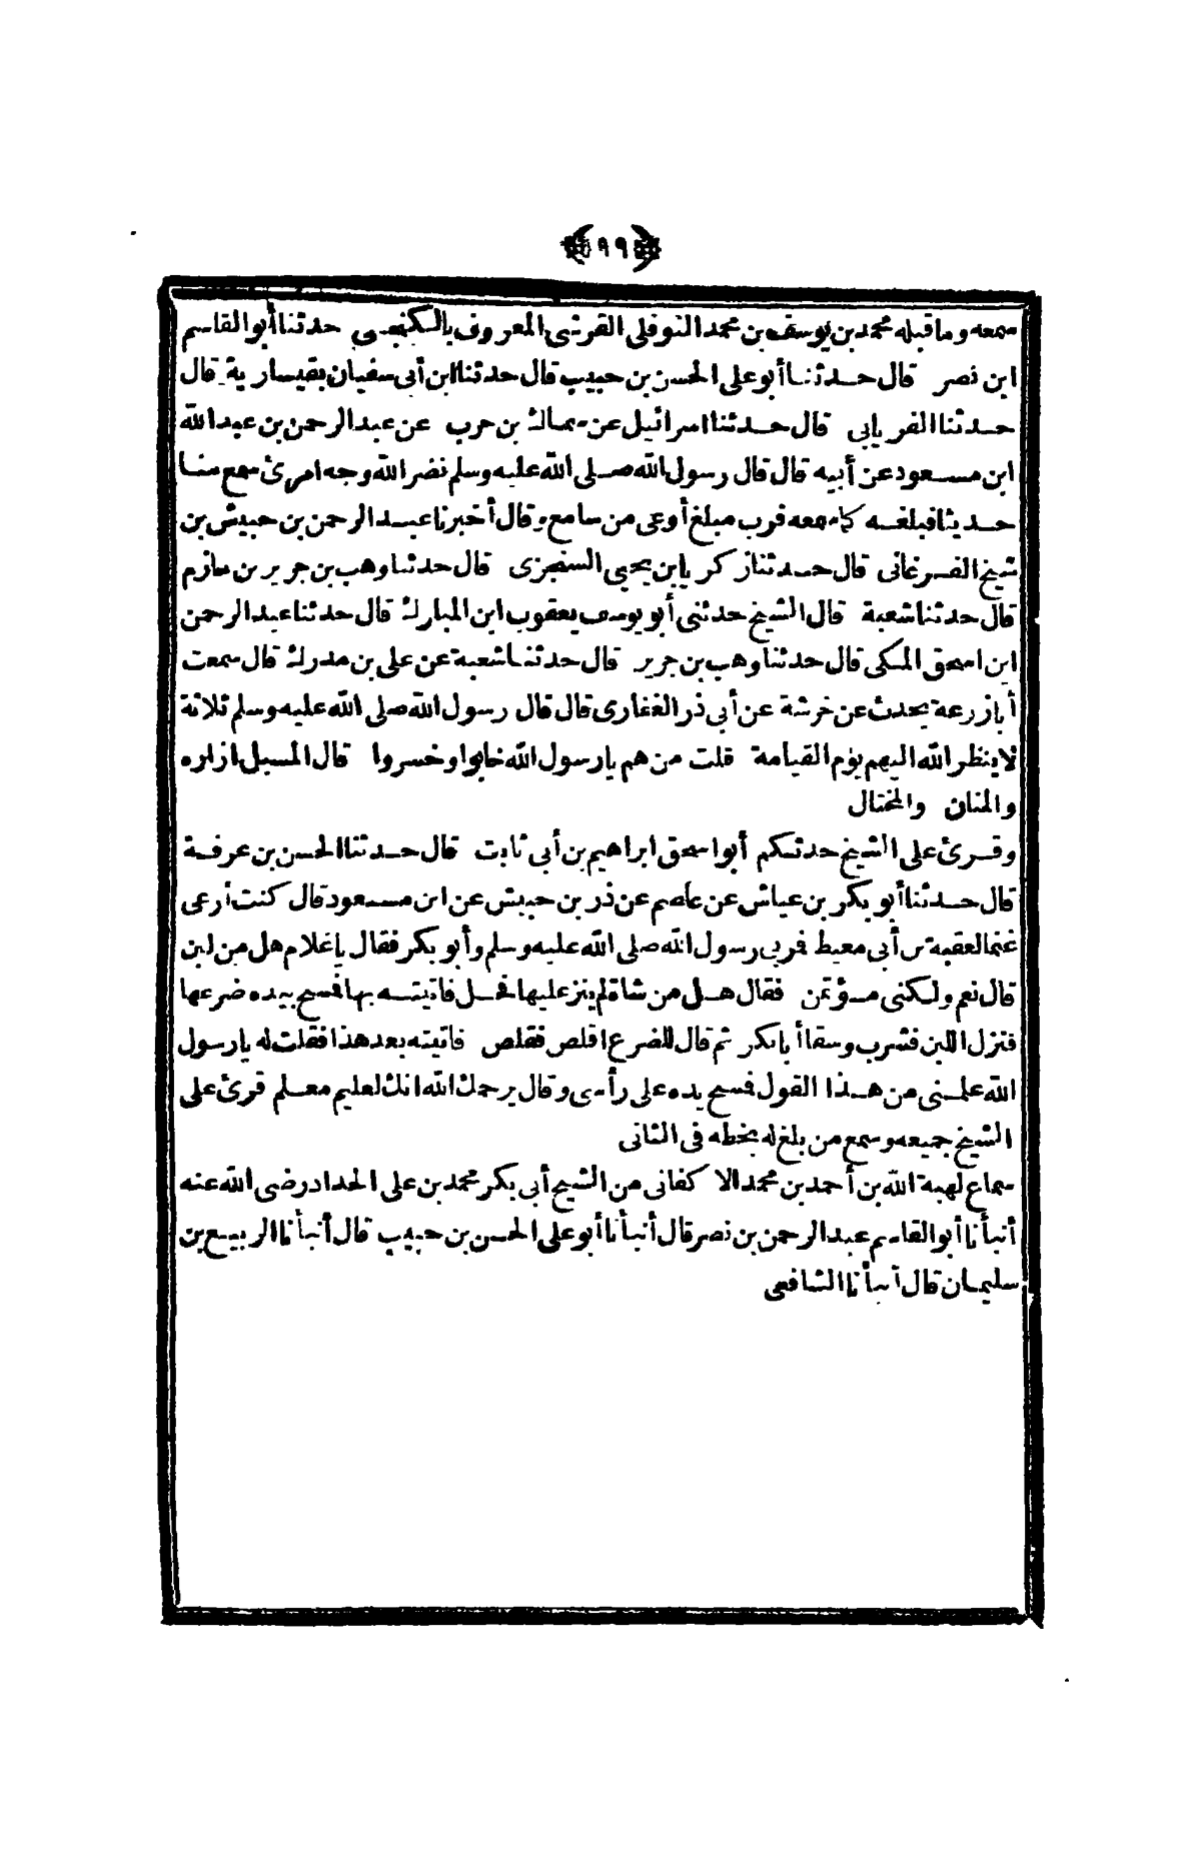 ﴿٩٩﴾
سمعه وما قبله محمد بن يوسف بن محمد النوفلى القرشى المعروف بالكنجى حدثنا أبو القاسم
ابن نصر قال حدثنا أبو على الحسن بن حبيب قال حدثنا ابن أبى سفيان بقيسارية قال
حدثنا الفريابى قال حدثنا اسرائيل عن سماك بن حرب عن عبد الرحمن بن عبد الله
ابن مسعود عن أبيه قال قال رسول الله صلى الله عليه وسلم نضر الله وجه امرئ سمع منا
حديثا فبلغه كما سمعه فرب مبلغ أوعى من سامع وقال أخبرنا عبد الرحمن بن حبيش بن
شيخ الفرغانى قال حدثنا زكريا بن يحيى السنجزى قال حدثنا وهب بن جرير بن حازم
قال حدثنا شعبة قال الشيخ حدثنى أبو يوسف يعقوب ابن المبارك قال حدثنا عبد الرحمن
ابن اسحق المكى قال حدثنا وهب بن جرير قال حدثنا شعبة عن على بن مدرك قال سمعت
أبا زرعة يحدث عن خرشة عن أبي ذر الغفارى قال قال رسول الله صلى الله عليه وسلم ثلاثة
لا ينظر الله اليهم يوم القيامة قلت من هم يا رسول الله خابوا وخسروا قال المسبل ازاره
والمنان والمختال
وقرئ على الشيخ حدثكم أبو اسحق ابراهيم بن أبى ثابت قال حدثنا الحسن بن عرفة
قال حدثنا أبو بكر بن عياش عن عاصم عن ذر بن حبيش عن ابن مسعود قال كنت أرعى
غنما لعقبة بن أبى معيط فربى رسول الله صلى الله عليه وسلم وأبو بكر فقال يا غلام هل من لبن
قال نعم ولكنى مؤتمن فقال هل من شاة لم ينز عليها فحل فاتيته بها فمسح بيده ضرعها
فنزل اللبن فشرب وسقا أبا بكر ثم قال للضرع اقلص فقلص فاتيته بعد هذا فقلت له يا رسول
الله علمنى من هذا القول فمسح يده على رأسى وقال يرحمك الله انك لعليم معلم قرئ على
الشيخ جميعه وسمع من بلغ له بخطه فى الثانى
سماع لهبة الله بن أحمد بن محمد الاكفانى من الشيخ أبى بكر محمد بن على الحداد رضى الله عنه
أنبأنا أبو القاسم عبد الرحمن بن نصر قال أنبأنا أبو على الحسن بن حبيب قال أنبأنا الربيع بن
سليمان قال أنبأنا الشافعى